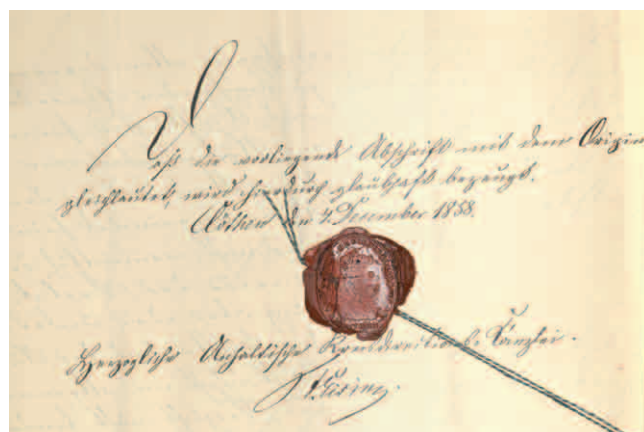 Daß die vorliegende Abschrift mit dem Origin
gleichlautet, wird hierdurch glaubhaft bezeugt.
Cöthen den 4. December 1858.
Herzogliche Anhaltische Canzlei.